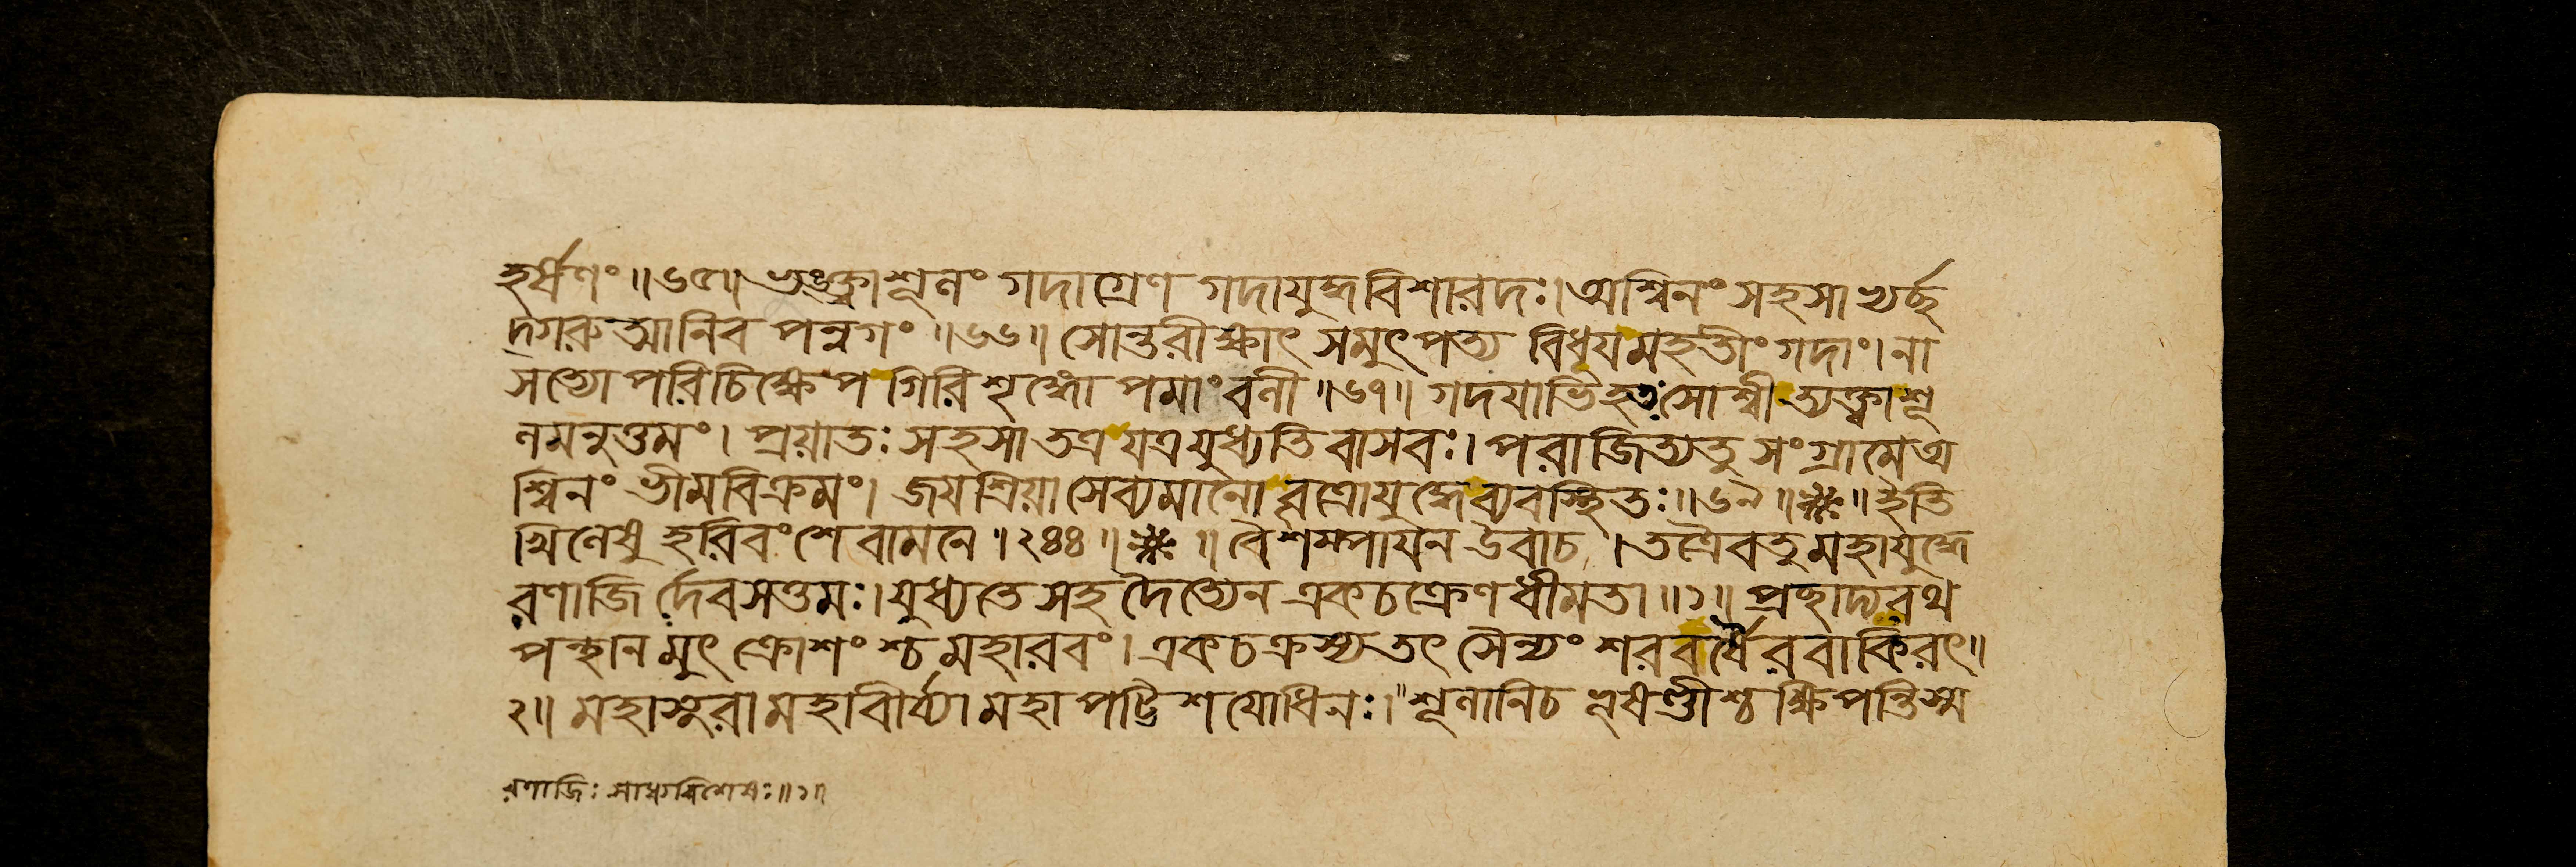 হর্ষণং ॥৬৫॥ ভঙ্ক্ত্বাশূলং গদাগ্রেণ গদাযুদ্ধবিশারদঃ। অশ্বিনং সহসা খর্চ্ছ
দ্গরুত্মানিব পন্নগং ॥৬৬॥ সোন্তরীক্ষাৎ সমুৎপত্য বিধূযমহতীং গদাং। না
সত্যোপরিচিক্ষেপ গিরিশৃঙ্গোপমাং বলী ॥৬৭॥ গদযাভিহতঃসোশ্বী ত্যক্ত্বাশূ
লমনুত্তমং। প্রয়াতঃ সহসা তত্র যত্রযুধ্যতি বাসবঃ। পরাজিত্যতু সংগ্রামেঅ
শ্বিনং ভীমবিক্রমং। জযশ্রিয়াসেব্যমানো বৃত্রোযুদ্ধেব্যবস্থিতঃ ॥৬৯॥ ॥ ইতি
খিলেষু হরিবংশে বামনে ।২৪৪॥ ॥ বৈশম্পাযন উবাচ। তত্রৈবতুমহাযুদ্ধে
রণাজি র্দেবসত্তমঃ। যুধ্যতে সহ দৈত্যেন একচক্রেণ ধীমতা ॥১॥ প্রহ্লাদ্যরথ
পন্থানমুৎক্রোশংশ্চ মহারবং। একচক্রস্যতৎ সৈন্যং শরবর্ষৈরবাকিরৎ॥
২॥ মহাসুরামহাবীর্য্যা মহাপট্টিশযোধিনঃ। শূলানিচ ভূষণ্ডীশ্চ ক্ষিপন্তিস্ম
রণাজিঃ সাধ্যবিশেষঃ॥১॥